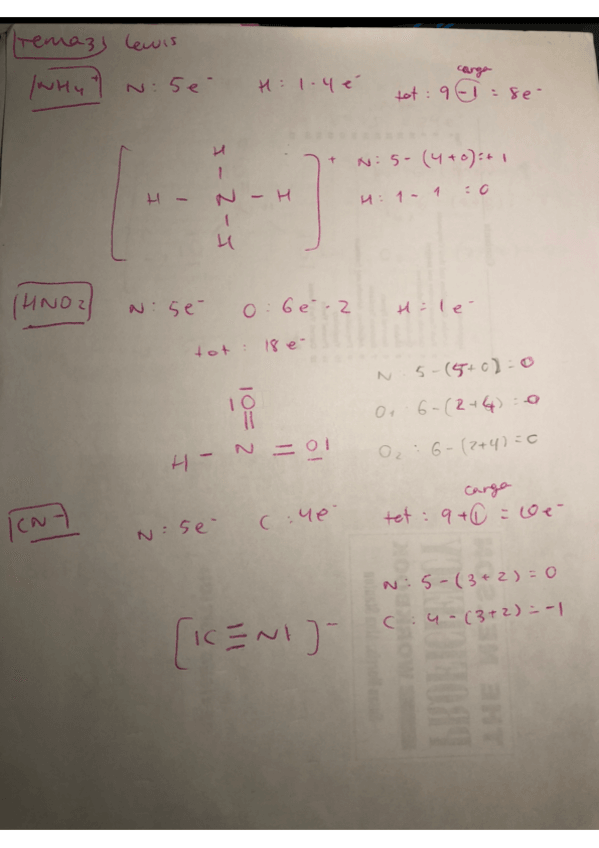 Tema 3: Lewis
NH4+ N: 5e- H: 1·4e- tot: 9 -1 = 8e-
carga
H
H - N - H
H
+
N: 5 - (4+0) = +1
H: 1 - 1 = 0
HNO2 N: 5e- O: 6e-·2 H = 1e-
tot: 18e-
N: 5 - (5+0) = 0
O1: 6 - (2+4) = 0
O2: 6 - (2+4) = 0
|O
||
H - N = O|
CN- N: 5e- C: 4e- tot: 9 + 1 = 10e-
carga
N: 5 - (3+2) = 0
C: 4 - (3+2) = -1
[|C ≡ N|]-
PROFICIENCY
THE NELSON
WORKBOOK